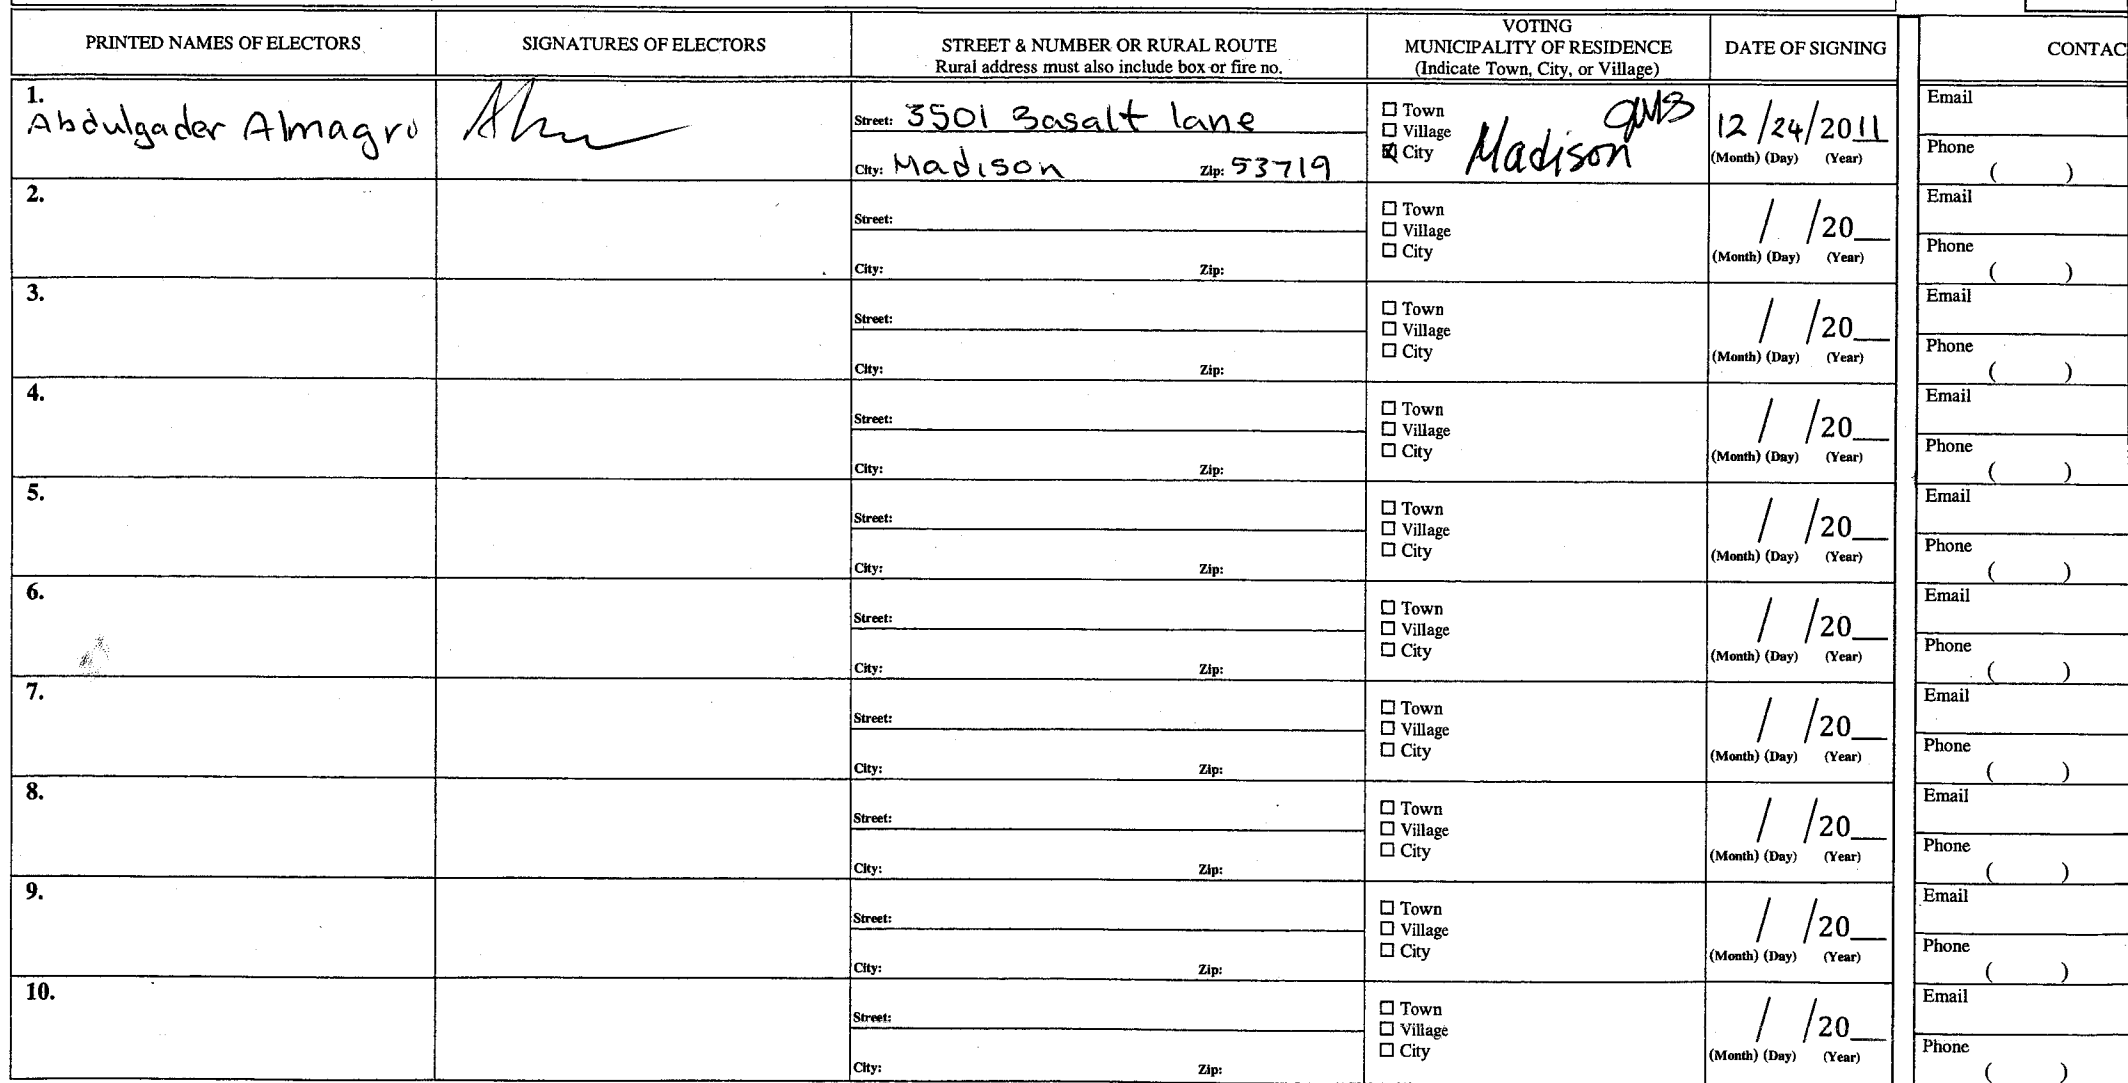 PRINTED NAMES OF ELECTORS SIGNATURES OF ELECTORS STREET & NUMBER OR RURAL ROUTE
Rural address must also include box or fire no. VOTING
MUNICIPALITY OF RESIDENCE
(Indicate Town, City, or Village) DATE OF SIGNING CONTAC
1.
Abdulgader Almagro
Street: 3501 Basalt lane
City: Madison Zip: 53719
Town
Village
City Madison
12/24/2011
(Month) (Day) (Year)
Email
Phone
( )
2.
Street:
City: Zip:
Town
Village
City
/ /20__
(Month) (Day) (Year)
Email
Phone
( )
3.
Street:
City: Zip:
Town
Village
City
/ /20__
(Month) (Day) (Year)
Email
Phone
( )
4.
Street:
City: Zip:
Town
Village
City
/ /20__
(Month) (Day) (Year)
Email
Phone
( )
5.
Street:
City: Zip:
Town
Village
City
/ /20__
(Month) (Day) (Year)
Email
Phone
( )
6.
Street:
City: Zip:
Town
Village
City
/ /20__
(Month) (Day) (Year)
Email
Phone
( )
7.
Street:
City: Zip:
Town
Village
City
/ /20__
(Month) (Day) (Year)
Email
Phone
( )
8.
Street:
City: Zip:
Town
Village
City
/ /20__
(Month) (Day) (Year)
Email
Phone
( )
9.
Street:
City: Zip:
Town
Village
City
/ /20__
(Month) (Day) (Year)
Email
Phone
( )
10.
Street:
City: Zip:
Town
Village
City
/ /20__
(Month) (Day) (Year)
Email
Phone
( )